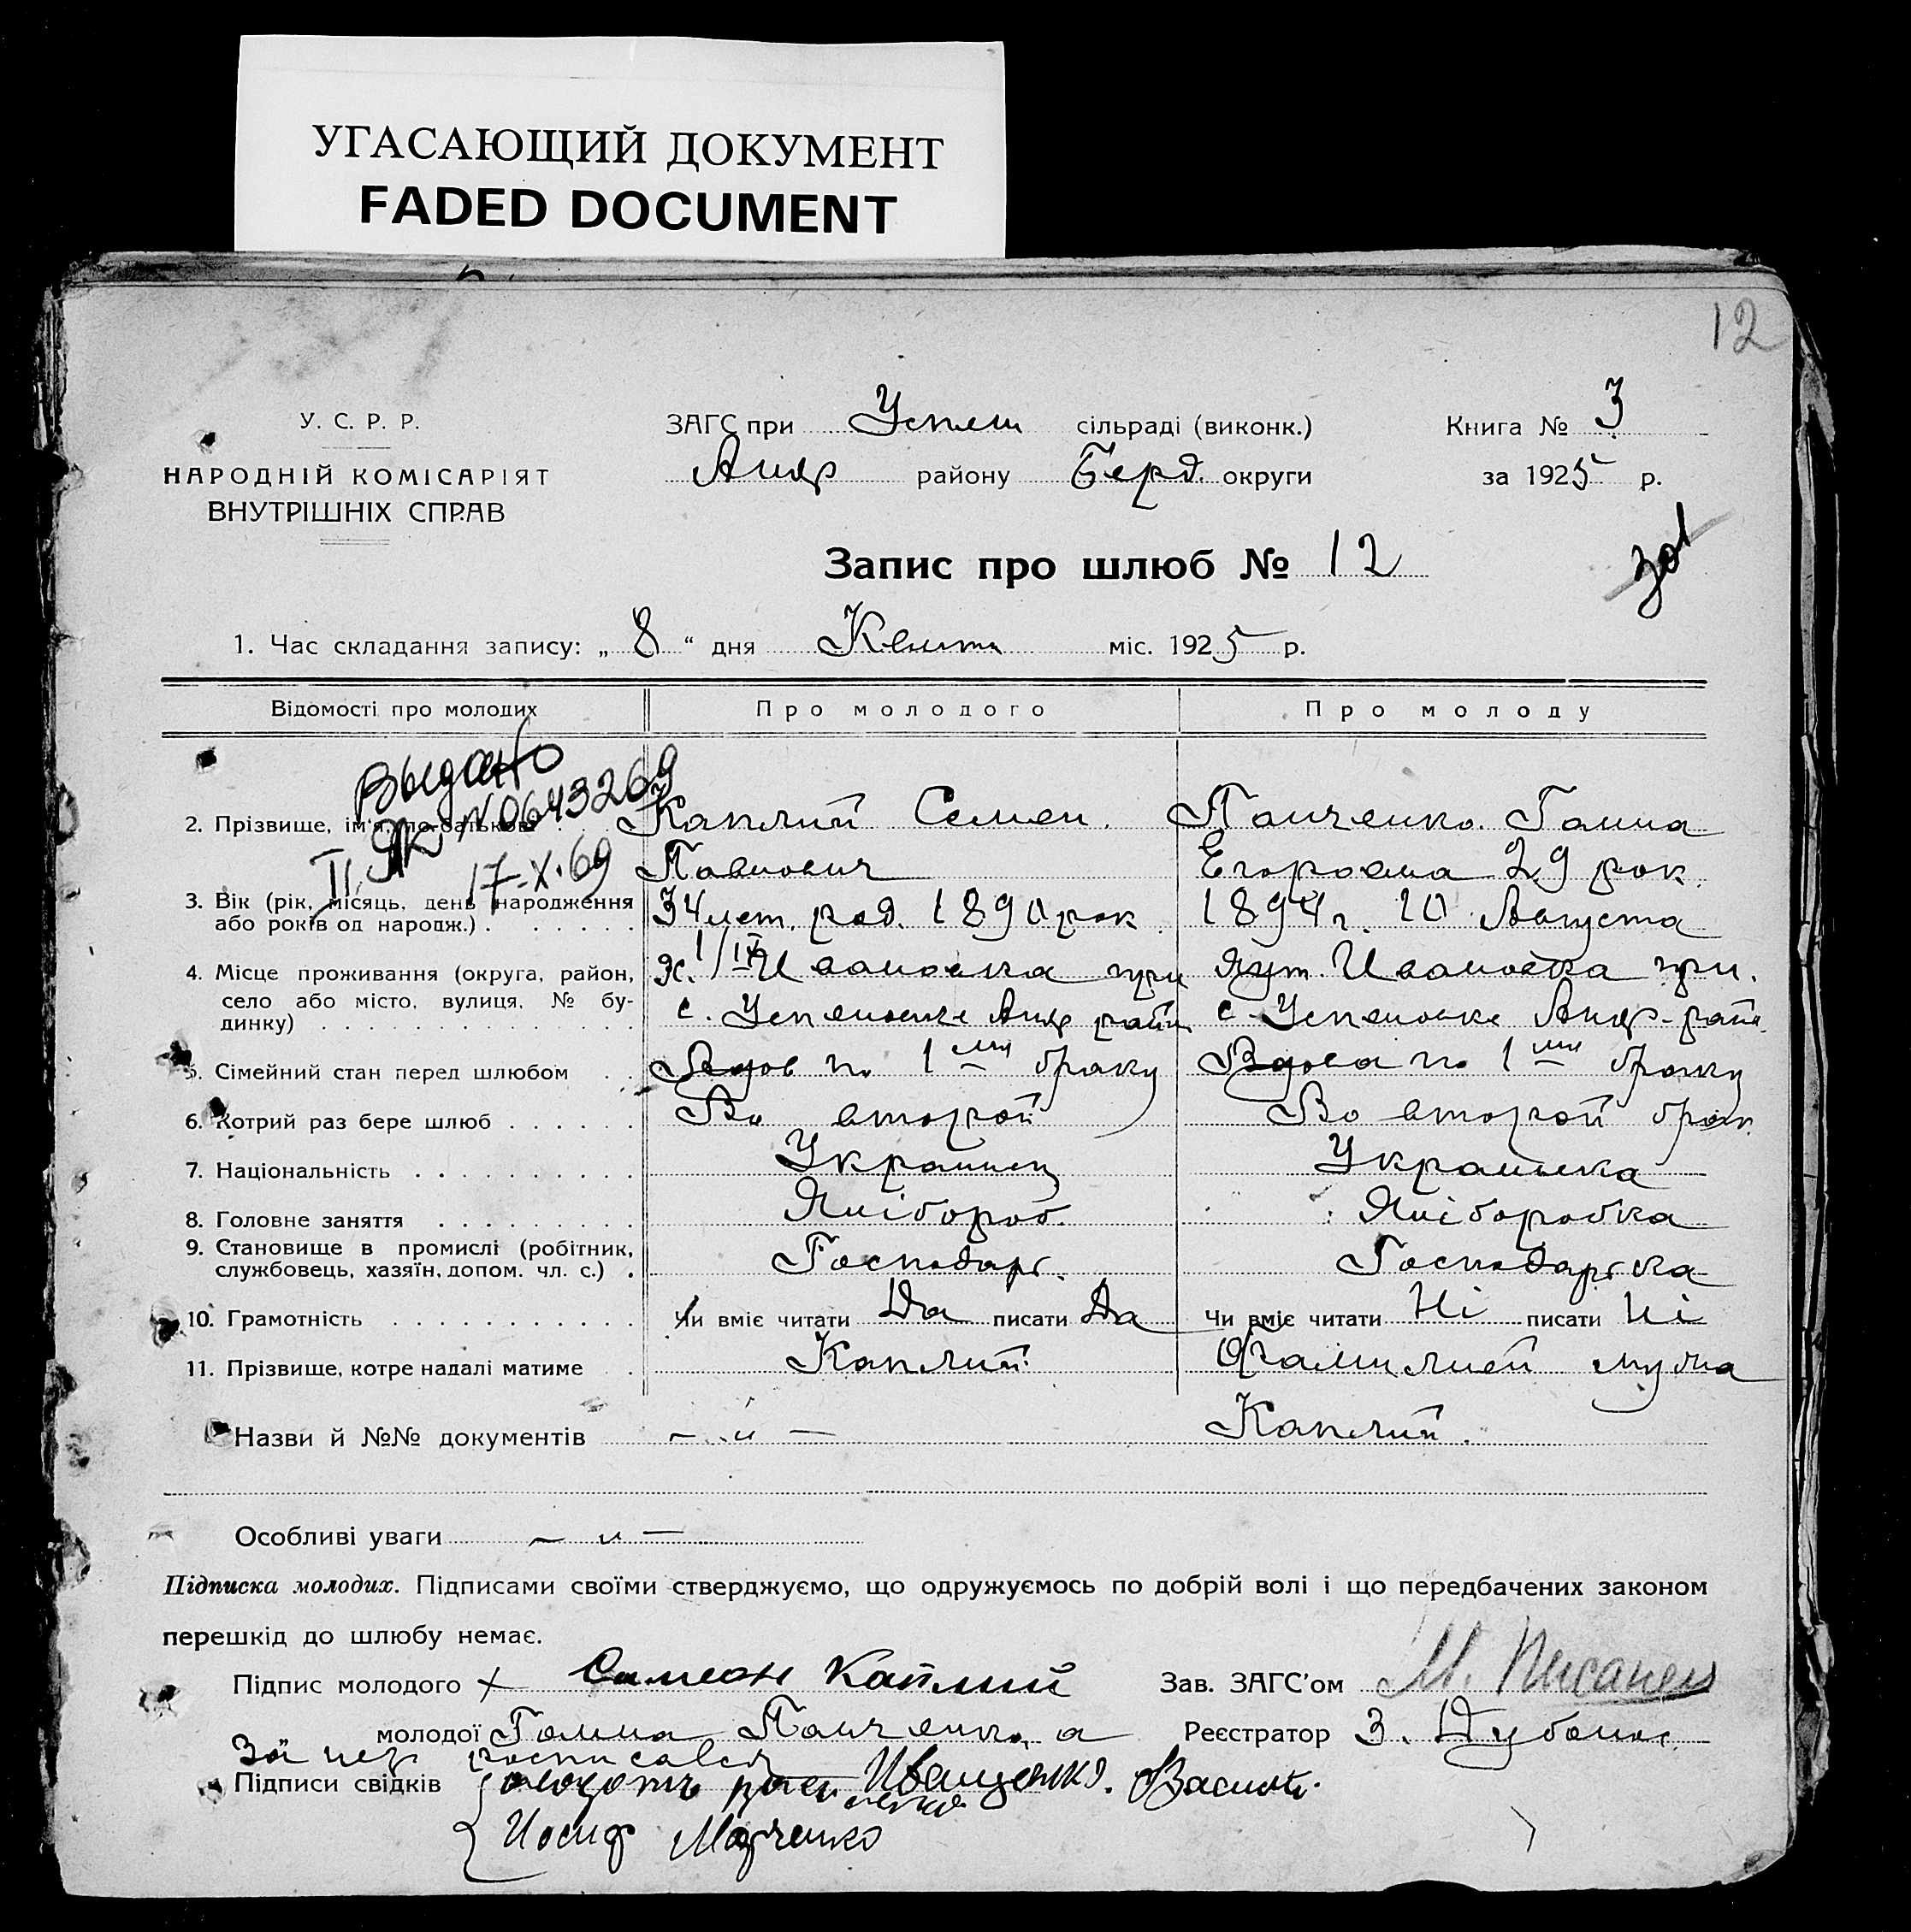 УГАСАЮЩИЙ ДОКУМЕНТ
FADED DOCUMENT
12
У. С. Р. Р.
НАРОДНІЙ КОМІСАРІЯТ
ВНУТРІШНІХ СПРАВ
ЗАГС при Успен сільраді (виконк.)
Андр району Берд. округи
Книга № 3
за 1925 р.
Запис про шлюб № 12
1. Час складання запису: „ 8 “ дня Квитн міс. 1925 р.
Відомості про молодих Про молодого Про молоду
Выдано
ІІ ЯК №0643269
17-X-69
2. Прізвище, ім'я, по-батькові Каплий Семен Павлович Панченко Ганна Егоровна 29 рок.
3. Вік (рік, місяць, день народження
або років од народж.) 34 лет. род. 1890 рок 1/IX 1894 г. 10 Августа
4. Місце проживання (округа, район,
село або місто, вулиця, № бу-
динку) х. Ивановка при с. Успеновке Андр район хут. Ивановка при. с. Успеновке Андр-райн.
5. Сімейний стан перед шлюбом Вдов по 1му браку Вдова по 1му браку
6. Котрий раз бере шлюб Во второй Во второй брак
7. Національність Украинец Украинка
8. Головне заняття Хлібороб. Хліборобка
9. Становище в промислі (робітник,
службовець, хазяїн, допом. чл. с.) Господарь. Господарька
10. Грамотність Чи вміє читати Да писати Да Чи вміє читати Ні писати Ні
11. Прізвище, котре надалі матиме Каплий Фамилией мужа
Каплий.
Назви й №№ документів — „ —
Особливі уваги — „ —
Підписка молодих. Підписами своїми стверджуємо, що одружуємось по добрій волі і що передбачених законом
перешкід до шлюбу немає.
Підпис молодого х Симеон Каплий Зав. ЗАГС'ом М. Писанец
молодої Ганна Панченко а Реєстратор З. Дубонос
За нер росписався
Підписи свідків Иващенко. Васили
Иосиф Марченко